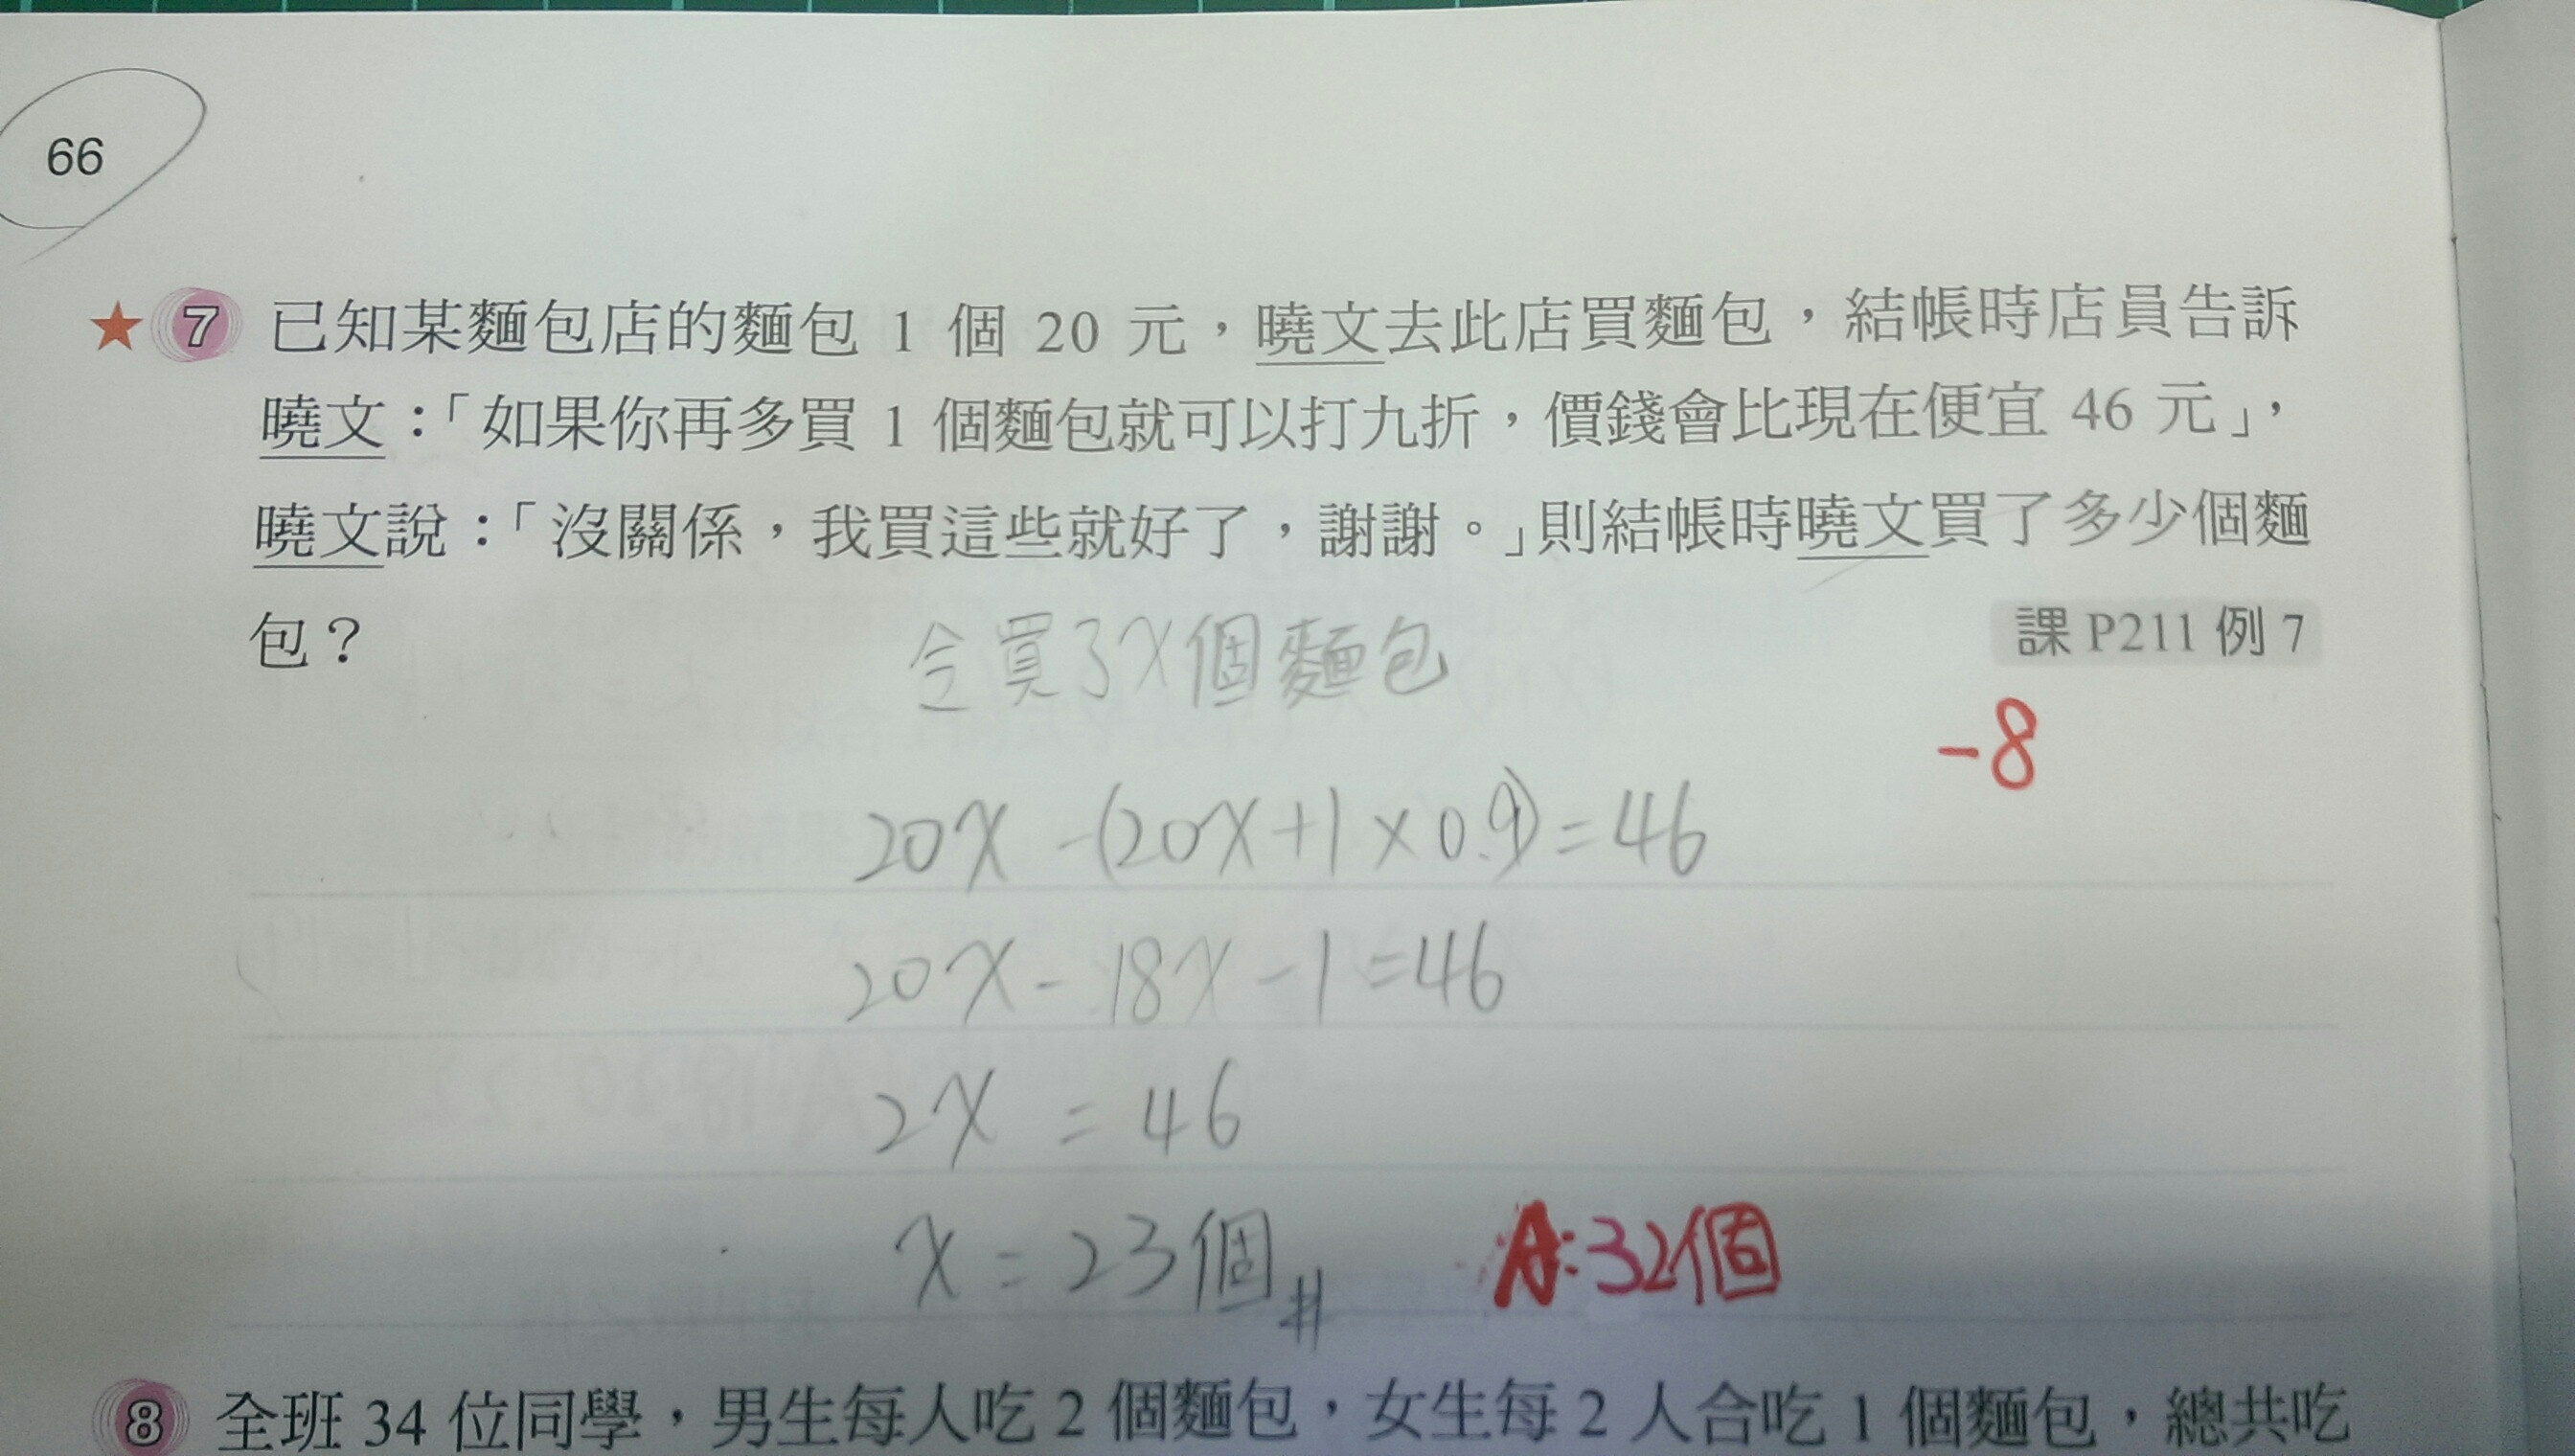 66
★ 7 已知某麵包店的麵包 1 個 20 元，曉文去此店買麵包，結帳時店員告訴
曉文：「如果你再多買 1 個麵包就可以打九折，價錢會比現在便宜 46 元」，
曉文說：「沒關係，我買這些就好了，謝謝。」則結帳時曉文買了多少個麵
包？
課 P211 例 7
令買了x個麵包
-8
20x -(20x+1×0.9)=46
20x - 18x -1=46
2x = 46
x = 23個#
A:32個
8 全班 34 位同學，男生每人吃 2 個麵包，女生每 2 人合吃 1 個麵包，總共吃